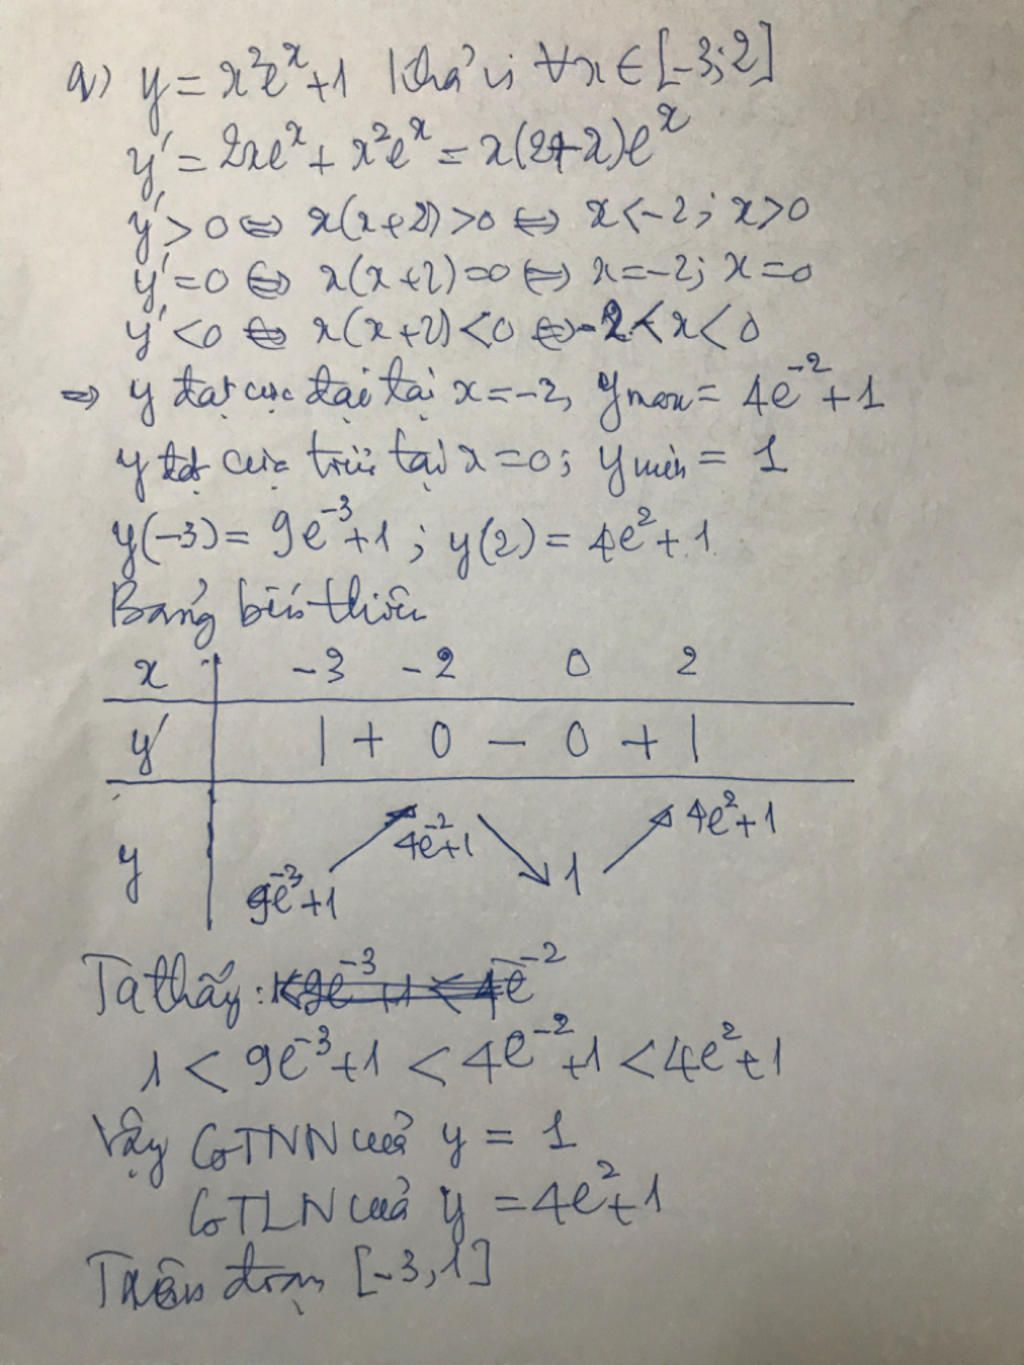 a) y = x²eˣ+1 khả vi ∀x∈[-3;2]
y' = 2xeˣ + x²eˣ = x(2+x)eˣ
y' > 0 ⇔ x(x+2) > 0 ⇔ x < -2; x > 0
y' = 0 ⇔ x(x+2) = 0 ⇔ x = -2; x = 0
y' < 0 ⇔ x(x+2) < 0 ⇔ -2 < x < 0
⇒ y đạt cực đại tại x = -2, ymax = 4e⁻²+1
y đạt cực trị tại x = 0; ymin = 1
y(-3) = 9e⁻³+1; y(2) = 4e²+1
Bảng biến thiên
x -3 -2 0 2
y' | + 0 - 0 + |
y 9e⁻³+1 ↗ 4e⁻²+1 ↘ 1 ↗ 4e²+1
Ta thấy: 1<9e⁻³+1 < 4e⁻²
1 < 9e⁻³+1 < 4e⁻²+1 < 4e²+1
Vậy GTNN của y = 1
GTLN của y = 4e²+1
Trên đoạn [-3,1]